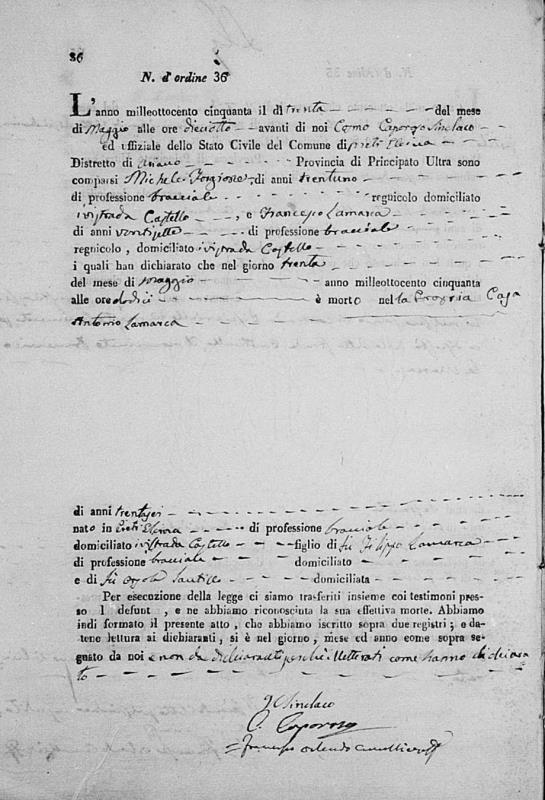 36
N. d'ordine 36
L'anno milleottocento cinquanta il dì trenta del mese
di Maggio alle ore dieciotto avanti di noi Como Caporaso Sindaco
ed uffiziale dello Stato Civile del Comune di Elcina
Distretto di Ariano Provincia di Principato Ultra sono
comparsi Michele di anni trentuno
di professione bracciale regnicolo domiciliato
ivi strada Castello, e Francesco Lamarca
di anni ventisette di professione bracciale
regnicolo, domiciliato ivi strada Castello
i quali han dichiarato che nel giorno trenta
del mese di Maggio anno milleottocento cinquanta
alle ore dodici è morto nella propria Casa
Antonio Lamarca
di anni trentasei
nato in di professione bracciale
domiciliato ivi strada Castello figlio di fu Filippo Lamarca
di professione bracciale domiciliato
e di fu domiciliata
Per esecuzione della legge ci siamo trasferiti insieme coi testimoni pres-
so l defunt , e ne abbiamo riconosciuta la sua effettiva morte. Abbiamo
indi formato il presente atto, che abbiamo iscritto sopra due registri; e da-
tene lettura ai dichiaranti, si è nel giorno, mese ed anno come sopra se-
gnato da noi e non da dichiaranti perchè illetterati come hanno dichiara
to
Il Sindaco
C. Caporaso